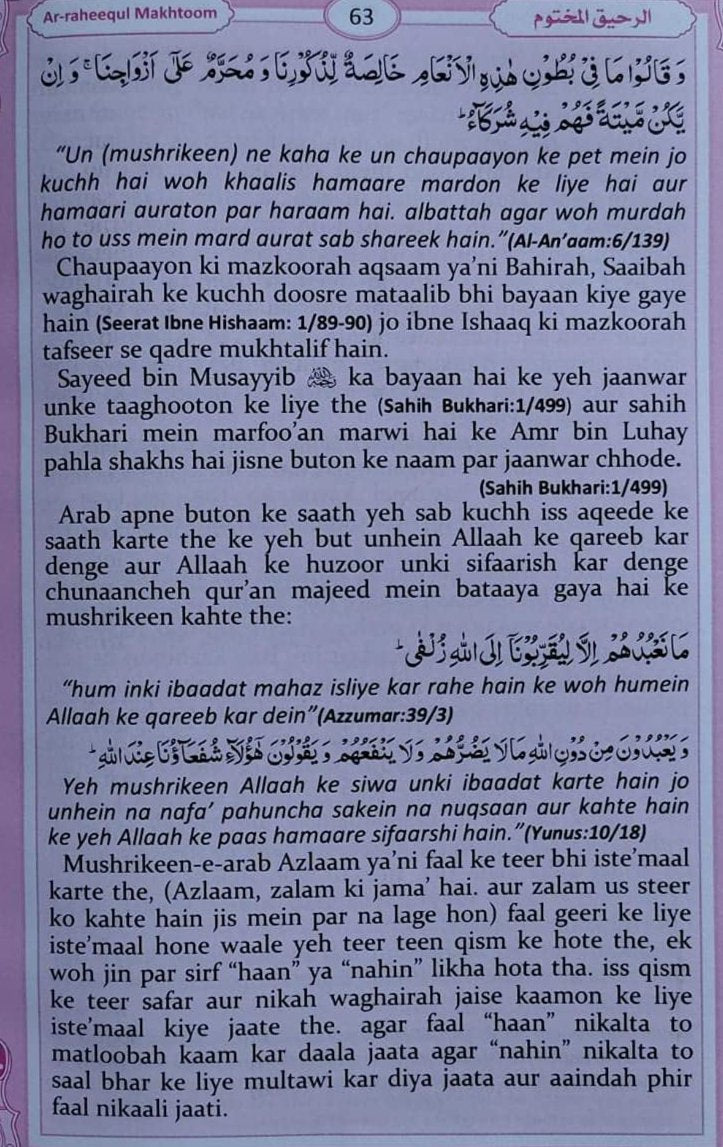 Ar-raheequl Makhtoom
63
الرحيق المختوم
وَقَالُوْا مَا فِيْ بُطُوْنِ هٰذِهِ الْاَنْعَامِ خَالِصَةٌ لِّذُكُوْرِنَا وَ مُحَرَّمٌ عَلٰٓى اَزْوَاجِنَا ۚ وَ اِنْ
يَّكُنْ مَّيْتَةً فَهُمْ فِيْهِ شُرَكَآءُ ؕ
“Un (mushrikeen) ne kaha ke un chaupaayon ke pet mein jo
kuchh hai woh khaalis hamaare mardon ke liye hai aur
hamaari auraton par haraam hai. albattah agar woh murdah
ho to uss mein mard aurat sab shareek hain.”(Al-An’aam:6/139)
Chaupaayon ki mazkoorah aqsaam ya’ni Bahirah, Saaibah
waghairah ke kuchh doosre mataalib bhi bayaan kiye gaye
hain (Seerat Ibne Hishaam: 1/89-90) jo ibne Ishaaq ki mazkoorah
tafseer se qadre mukhtalif hain.
Sayeed bin Musayyib ka bayaan hai ke yeh jaanwar
unke taaghooton ke liye the (Sahih Bukhari:1/499) aur sahih
Bukhari mein marfoo’an marwi hai ke Amr bin Luhay
pahla shakhs hai jisne buton ke naam par jaanwar chhode.
(Sahih Bukhari:1/499)
Arab apne buton ke saath yeh sab kuchh iss aqeede ke
saath karte the ke yeh but unhein Allaah ke qareeb kar
denge aur Allaah ke huzoor unki sifaarish kar denge
chunaancheh qur’an majeed mein bataaya gaya hai ke
mushrikeen kahte the:
مَا نَعْبُدُهُمْ اِلَّا لِيُقَرِّبُوْنَآ اِلَى اللهِ زُلْفٰى ؕ
“hum inki ibaadat mahaz isliye kar rahe hain ke woh humein
Allaah ke qareeb kar dein”(Azzumar:39/3)
وَ يَعْبُدُوْنَ مِنْ دُوْنِ اللهِ مَا لَا يَضُرُّهُمْ وَلَا يَنْفَعُهُمْ وَ يَقُوْلُوْنَ هٰٓؤُلَآءِ شُفَعَآؤُنَا عِنْدَ اللهِ ؕ
Yeh mushrikeen Allaah ke siwa unki ibaadat karte hain jo
unhein na nafa’ pahuncha sakein na nuqsaan aur kahte hain
ke yeh Allaah ke paas hamaare sifaarshi hain.”(Yunus:10/18)
Mushrikeen-e-arab Azlaam ya’ni faal ke teer bhi iste’maal
karte the, (Azlaam, zalam ki jama’ hai. aur zalam us steer
ko kahte hain jis mein par na lage hon) faal geeri ke liye
iste’maal hone waale yeh teer teen qism ke hote the, ek
woh jin par sirf “haan” ya “nahin” likha hota tha. iss qism
ke teer safar aur nikah waghairah jaise kaamon ke liye
iste’maal kiye jaate the. agar faal “haan” nikalta to
matloobah kaam kar daala jaata agar “nahin” nikalta to
saal bhar ke liye multawi kar diya jaata aur aaindah phir
faal nikaali jaati.